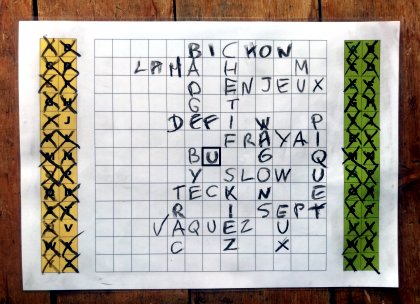 BICHON
LAMA H M
D ENJEUX
G T
J DEFI W P
FRAYAI
BU G Q
Y SLOW U
TECK N E
R I SEPT
V VAQUEZ U
C Z X